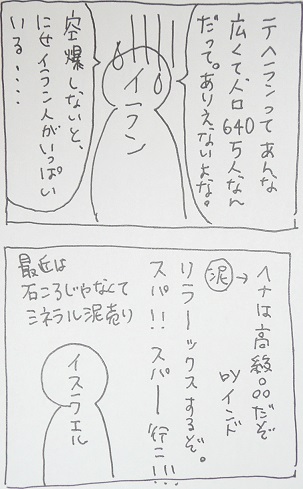 テヘランってあんな
広くて人口640
万人なん
だって。ありえないよな。
イラン
空爆しないと、
にせイラン人がいっぱい
いる・・・・
ヘナは高級○○○だぞ
byインド
泥→
リラーックスするぞ。
スパ!!スパー行こ!!!
最近は
石ころじゃなくて
ミネラル泥売り
イスラエル